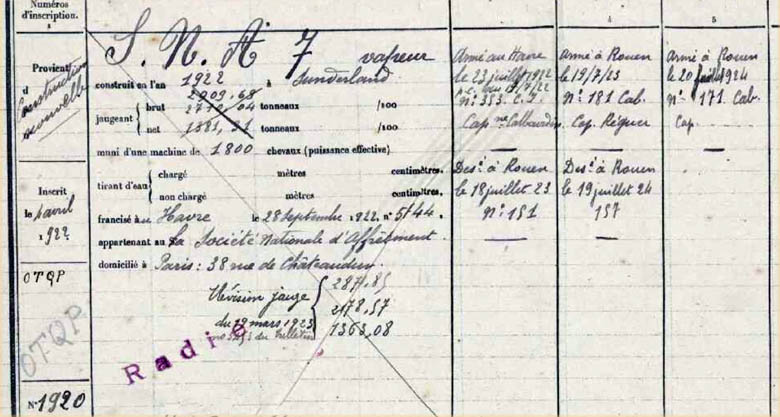 Numéros
d'inscription.
Provient
d
Construction
nouvelle
Inscrit
le 4 avril
1922
OTQP
OTQP
N° 1920
S. N. A 7 vapeur
construit en l'an 1922 à Sunderland
2909.68
jaugeant brut tonneaux /100
net 1381,31 tonneaux /100
muni d'une machine de 1800 chevaux (puissance effective)
tirant d'eau chargé mètres centimètres.
non chargé mètres centimètres.
francisé au Havre le 28 Septembre 1922. n° 5744.
appartenant au La Société Nationale d'Affrètement.
domicilié à Paris: 38 rue de Châteaudun.
Révision jauge
du 19 mars 1923
du Bulletin
2178.57
1363,08
Radio
Armé au Havre
le 23 juillet 1922
N° 353. C.
Cap ne
Des.é à Rouen
le 18 juillet 23
N° 151
4
Armé à Rouen
le 19/7/23
N° 181 Cab.
Cap. Réguer
Des.é à Rouen
le 19 juillet 24
157
5
Armé à Rouen
le 20 juillet 1924
N° 171 Cab.
Cap.